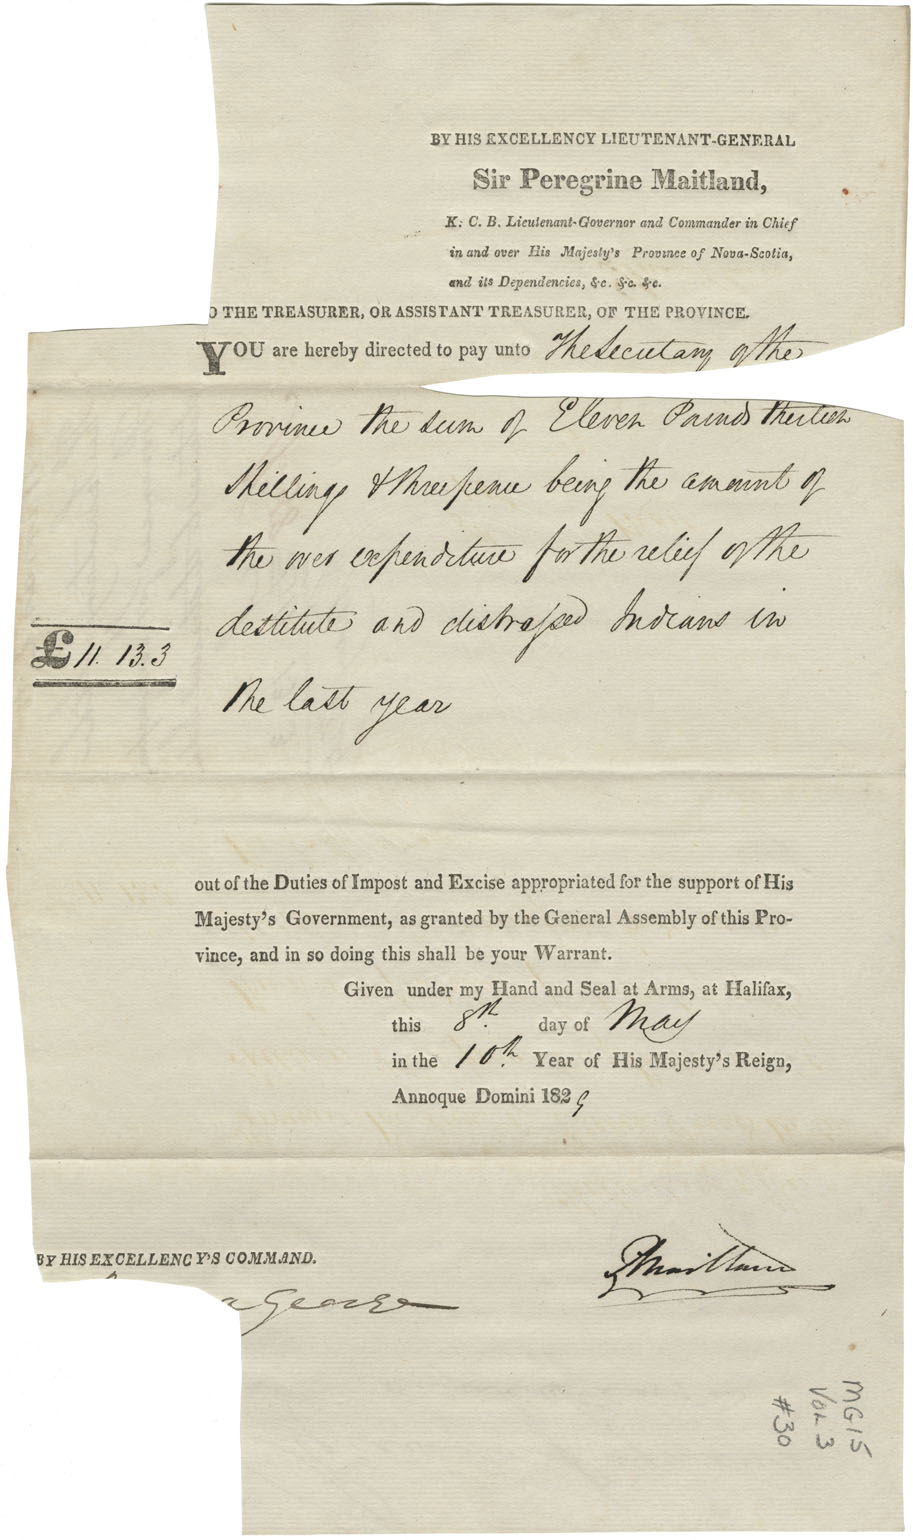 BY HIS EXCELLENCY LIEUTENANT-GENERAL
Sir Peregrine Maitland,
K. C. B. Lieutenant-Governor and Commander in Chief
in and over His Majesty's Province of Nova-Scotia,
and its Dependencies, &c. &c. &c.
O THE TREASURER, OR ASSISTANT TREASURER, OF THE PROVINCE.
YOU are hereby directed to pay unto The Secretary of the
Province the sum of Eleven Pounds thirteen
Shillings & threepence being the amount of
the over expenditure for the relief of the
destitute and distressed Indians in
£ 11. 13. 3
the last year
out of the Duties of Impost and Excise appropriated for the support of His
Majesty's Government, as granted by the General Assembly of this Pro-
vince, and in so doing this shall be your Warrant.
Given under my Hand and Seal at Arms, at Halifax,
this 8th day of May
in the 10th Year of His Majesty's Reign,
Annoque Domini 1829
BY HIS EXCELLENCY'S COMMAND.
PMaitland
George
MG15
Vol 3
#30